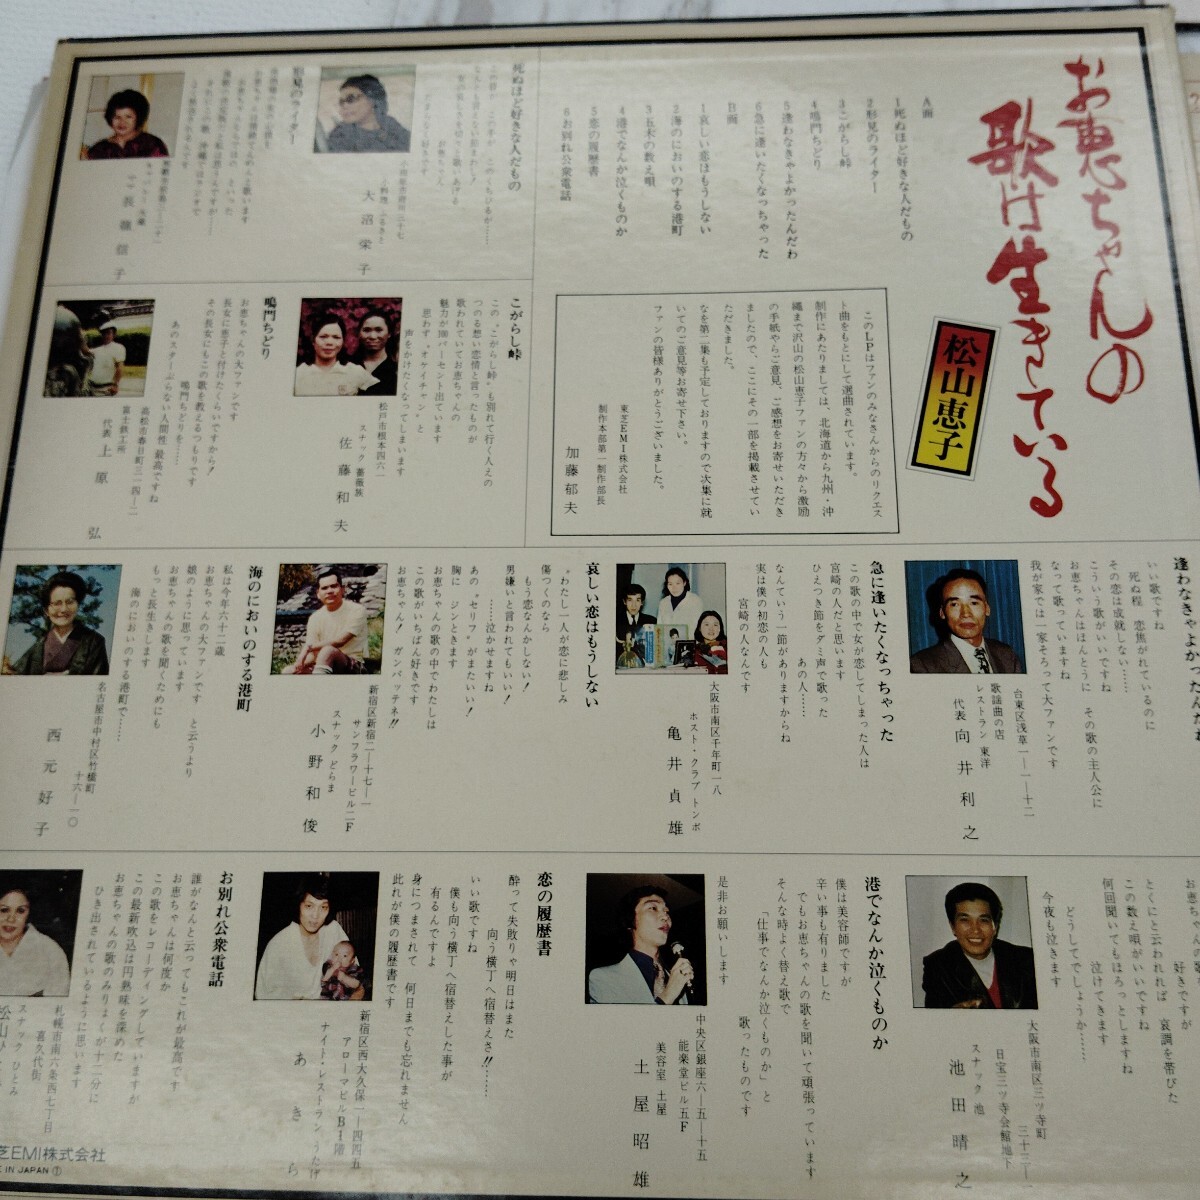 お恵ちゃんの
歌は生きている
松山恵子
A面
1死ぬほど好きな人だもの
2形見のライター
3こがらし峠
4鳴門ちどり
5逢わなきゃよかったんだわ
6急に逢いたくなっちゃった
B面
1哀しい恋はもうしない
2海のにおいのする港町
3五木の数え唄
4港でなんか泣くものか
5恋の履歴書
6お別れ公衆電話
このLPはファンのみなさんからのリクエス
ト曲をもとにして選曲されています。
制作にあたりましては、北海道から九州・沖
縄まで沢山の松山恵子ファンの方々から激励
の手紙やらご意見、ご感想をお寄せいただき
ましたので、ここにその一部を掲載させてい
ただきました。
なを第二集も予定しておりますので次集に就
いてのご意見等お寄せ下さい。
ファンの皆様ありがとうございました。
東芝EMI株式会社
制作本部第一制作部長
加藤郁夫
死ぬほど好きな人だもの
大沼栄子
形見のライター
こがらし峠
この“こがらし峠”も別れて行く人えの
つのる想い恋情と言ったものが
歌われていてお恵ちゃんの
魅力が100パーセント出ています
思わず“オケイチャン”と
声をかけたくなってしまいます
松戸市根本四六一
スナック 薔薇族
佐藤和夫
鳴門ちどり
お恵ちゃんの大ファンです
長女に恵子と付けたくらいですから！
その長女にもこの歌を教えるつもりです
鳴門ちどりを……
あのスターぶらない人間性 最高ですね
高松市春日町三一四‐二
富士鉄工所
代表 上原 弘
逢わなきゃよかったんだわ
いい歌ですね
死ぬ程 恋焦がれているのに
その恋は成就しない……
こういう歌がいいですね
お恵ちゃんはほんとうに その歌の主人公に
なって歌っていますね
我が家では一家そろって大ファンです
台東区浅草一‐一‐十二
歌謡曲の店
レストラン 東洋
代表 向井利之
急に逢いたくなっちゃった
この歌の中で女が恋してしまった人は
宮崎の人だと思います
ひえつき節をダミ声で歌った
あの人……
なんていう一節がありますからね
実は僕の初恋の人も
宮崎の人なんです
大阪市南区千年町一八
ホスト・クラブ トンボ
亀井貞雄
哀しい恋はもうしない
“わたし一人が恋に悲しみ
傷つくのなら
もう恋なんかしない！
男嫌いと言われてもいい！
……泣かせますね
あの“セリフ”がまたいい！
胸に ジンときます
お恵ちゃんの歌の中でわたしは
この歌がいちばん好きです
お恵ちゃん！ ガンバッテネ!!
新宿区新宿二‐十七‐一
サンフラワービル二F
スナック どらま
小野和俊
海のにおいのする港町
私は今年六十二歳
お恵ちゃんの大ファンです と云うより
娘のように思っています
お恵ちゃんの歌を聞くためにも
もっと長生きします
海のにおいのする港町で……
名古屋市中村区竹橋町
十六‐一〇
西元好子
お恵ちゃんの歌
好きですが
とくにと云われれば 哀調を帯びた
この数え唄がいいですね
何回聞いてもほろっとしますね
泣けてきます
どうしてでしょうか……
今夜も泣きます
大阪市南区三ッ寺町
三十三‐一
日宝三ッ寺会館地下
スナック池
池田晴之
港でなんか泣くものか
僕は美容師ですが
辛い事も有りました
でもお恵ちゃんの歌を聞いて頑張っています
そんな時よく替え歌で
「仕事でなんか泣くものか」と
歌ったものです
是非お願いします
中央区銀座六‐五‐十五
能楽堂ビル五F
美容室 土屋
土屋昭雄
恋の履歴書
酔って失敗りゃ明日はまた
向う横丁へ宿替えさ!!……
いい歌ですね
僕も向う横丁へ宿替えした事が
有るんですよ
身につまされて 何日までも忘れません
此れが僕の履歴書です
新宿区西大久保一‐四四五
アローマビルB1階
ナイト・レストラン うたげ
あきら
お別れ公衆電話
誰がなんと云ってもこれが最高です
お恵ちゃんは何度か
この歌をレコーディングしていますが
この最新吹込は円熟味を深めた
お恵ちゃんの歌のみりょくが十二分に
ひき出されているように思います
札幌市南六条西七丁目
喜久代街
スナック ひとみ
芝EMI株式会社
IN JAPAN ①